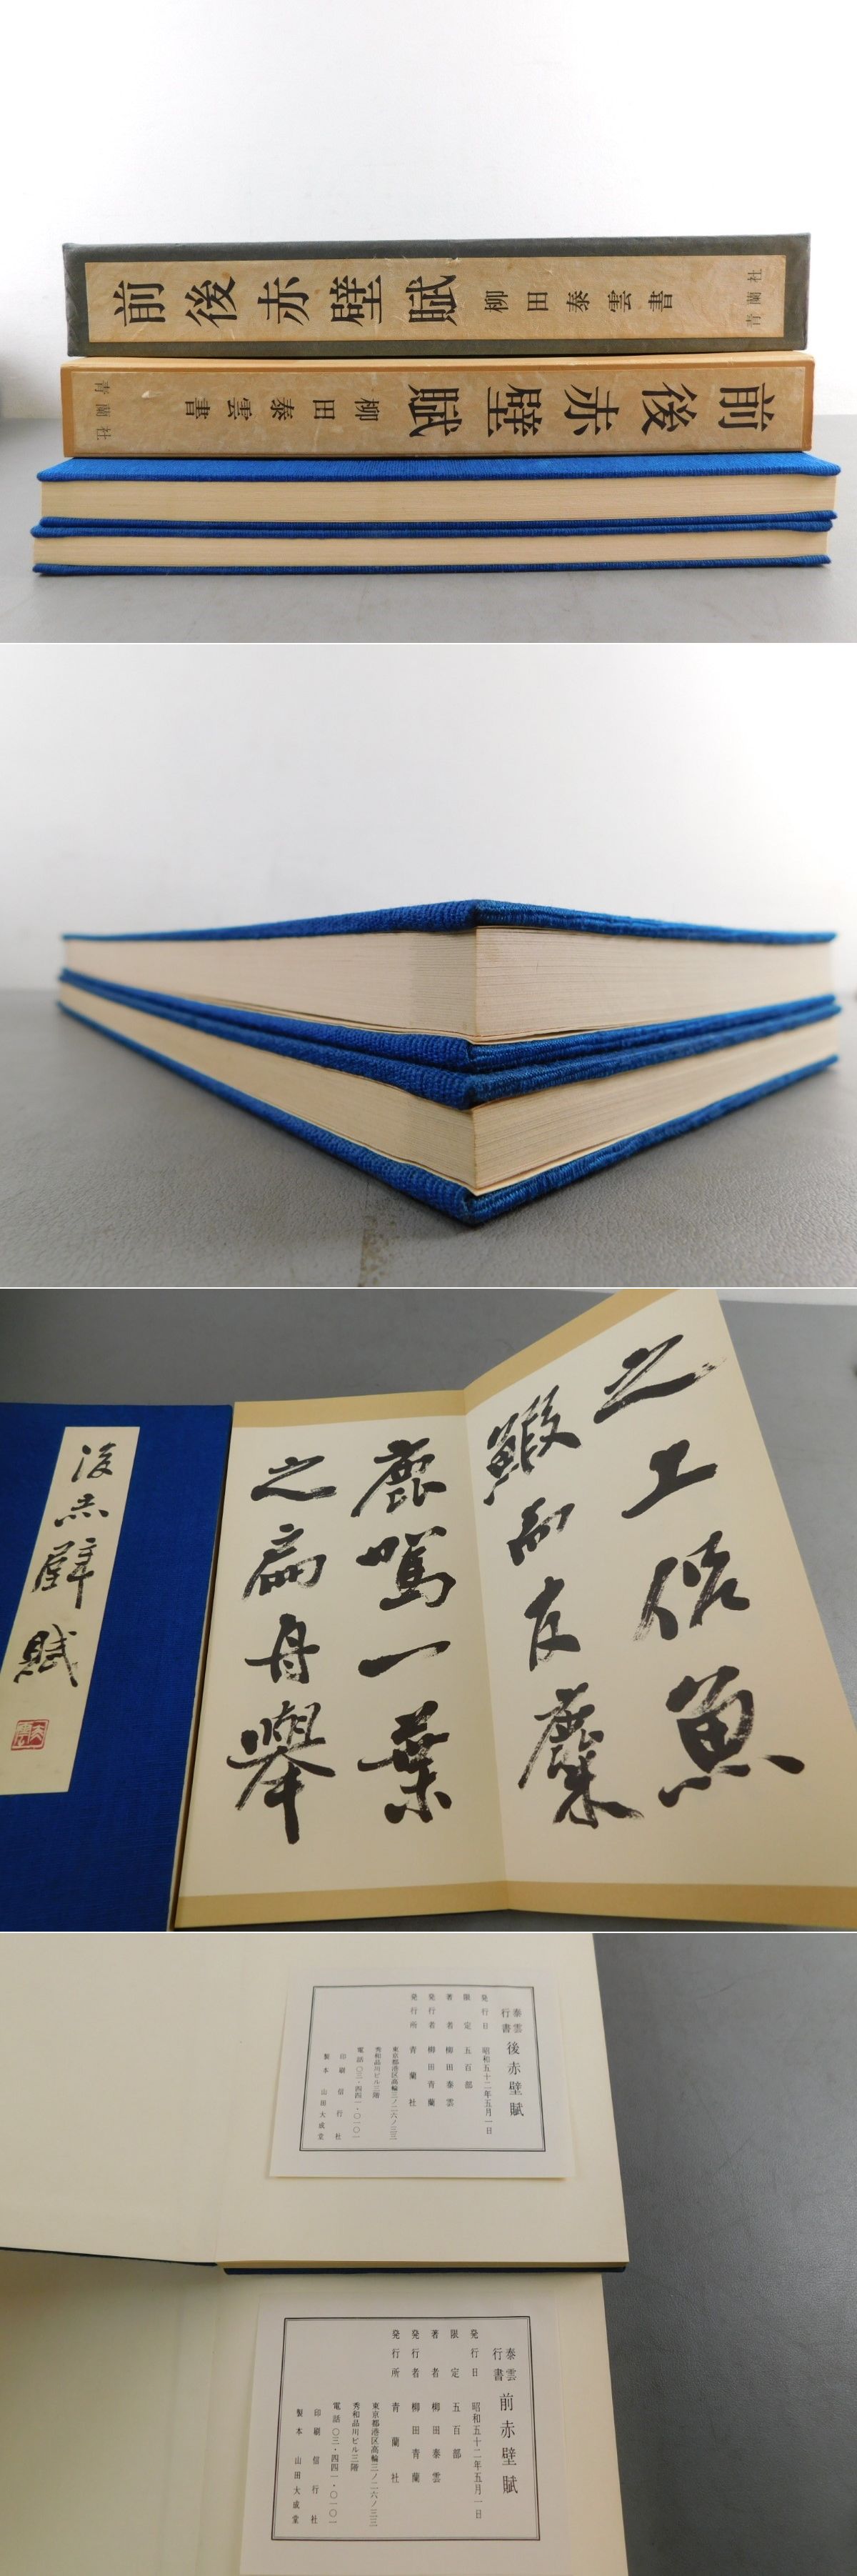 前後赤壁賦 柳田泰雲書 青蘭社
前後赤壁賦 柳田泰雲書 青蘭社
後赤壁賦
之上侶魚
鰕而友麋
鹿駕一葉
之扁舟舉
泰雲行書 後赤壁賦
発行日 昭和五十二年五月一日
限定 五百部
著者 柳田泰雲
発行者 柳田青蘭
発行所 青蘭社
東京都港区高輪三ノ二六ノ三三
秀和品川ビル三階
電話〇三・四四一・〇一〇一
印刷 信行社
製本 山田大成堂
泰雲行書 前赤壁賦
発行日 昭和五十二年五月一日
限定 五百部
著者 柳田泰雲
発行者 柳田青蘭
発行所 青蘭社
東京都港区高輪三ノ二六ノ三三
秀和品川ビル三階
電話〇三・四四一・〇一〇一
印刷 信行社
製本 山田大成堂